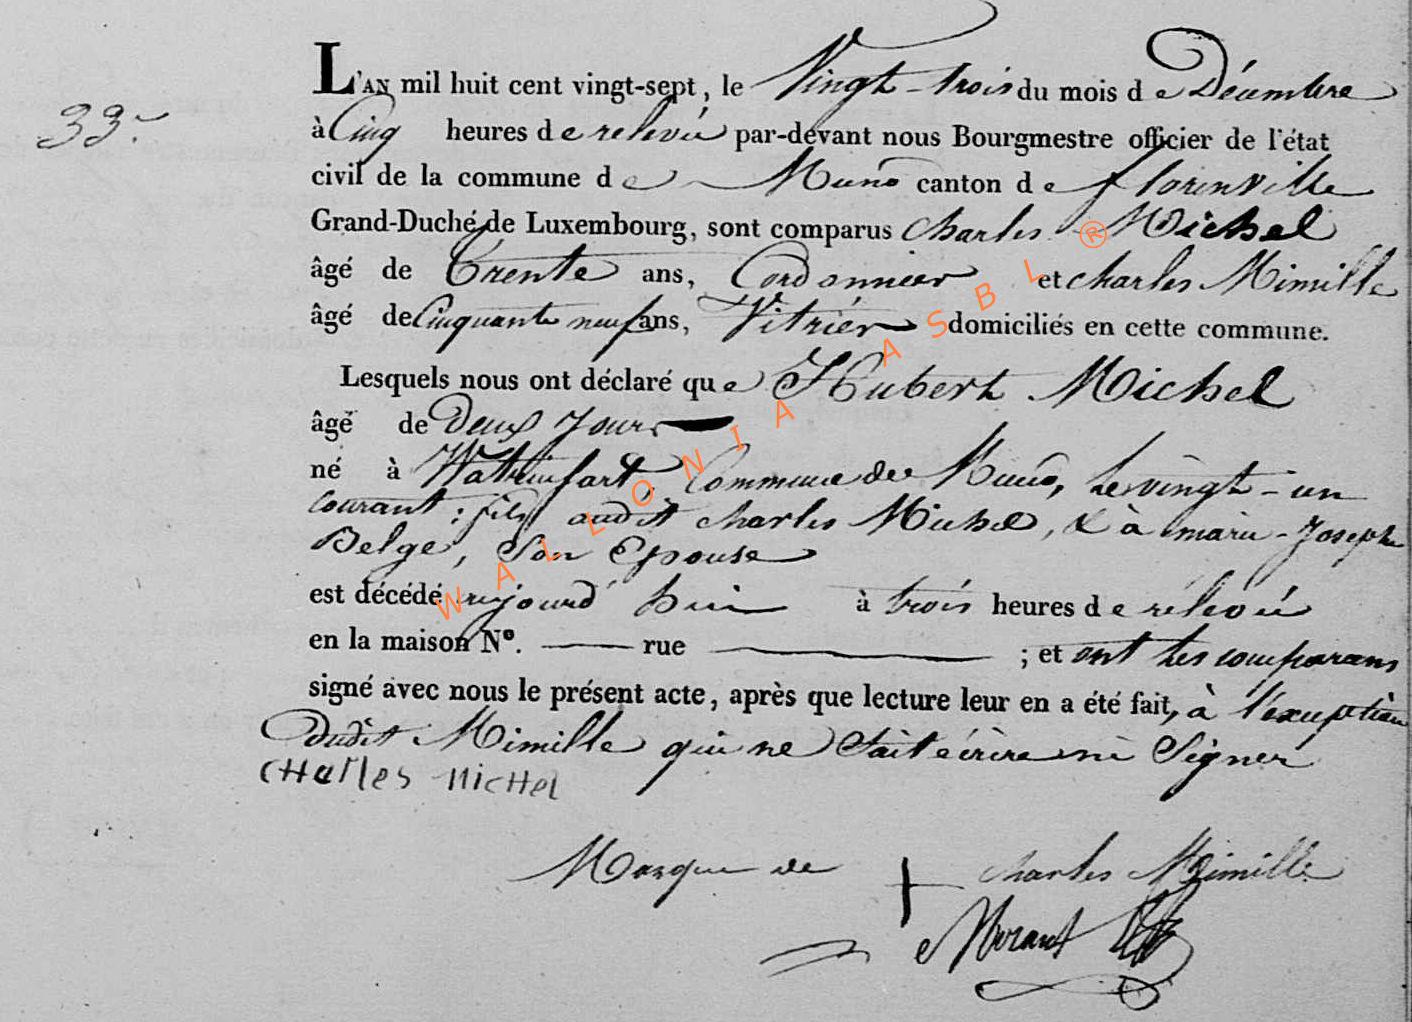 33.
L'AN mil huit cent vingt-sept, le Vingt-trois du mois de Décembre
à Cinq heures de relevée par-devant nous Bourgmestre officier de l'état
civil de la commune de Muno canton de florenville
Grand-Duché de Luxembourg, sont comparus Charles Michel
âgé de Trente ans, Cordonnier et charles Mimille
âgé de Cinquante neuf ans, Vitrier domiciliés en cette commune.
Lesquels nous ont déclaré que Hubert Michel
âgé de Deux Jours
né à Watrinsart, Commune de Muno, Le vingt-un
courant : fils audit charles Michel, & à marie-Joseph
Belge, Son Epouse
est décédé aujourd'hui à trois heures de rélevée
en la maison N°. rue ; et ont Les comparans
signé avec nous le présent acte, après que lecture leur en a été fait, à l'exception
dudit Mimille qui ne Sait écrire ni Signer
CHarles MicHel
Marque de + charles Mimille
WALLONIA ASBL ®